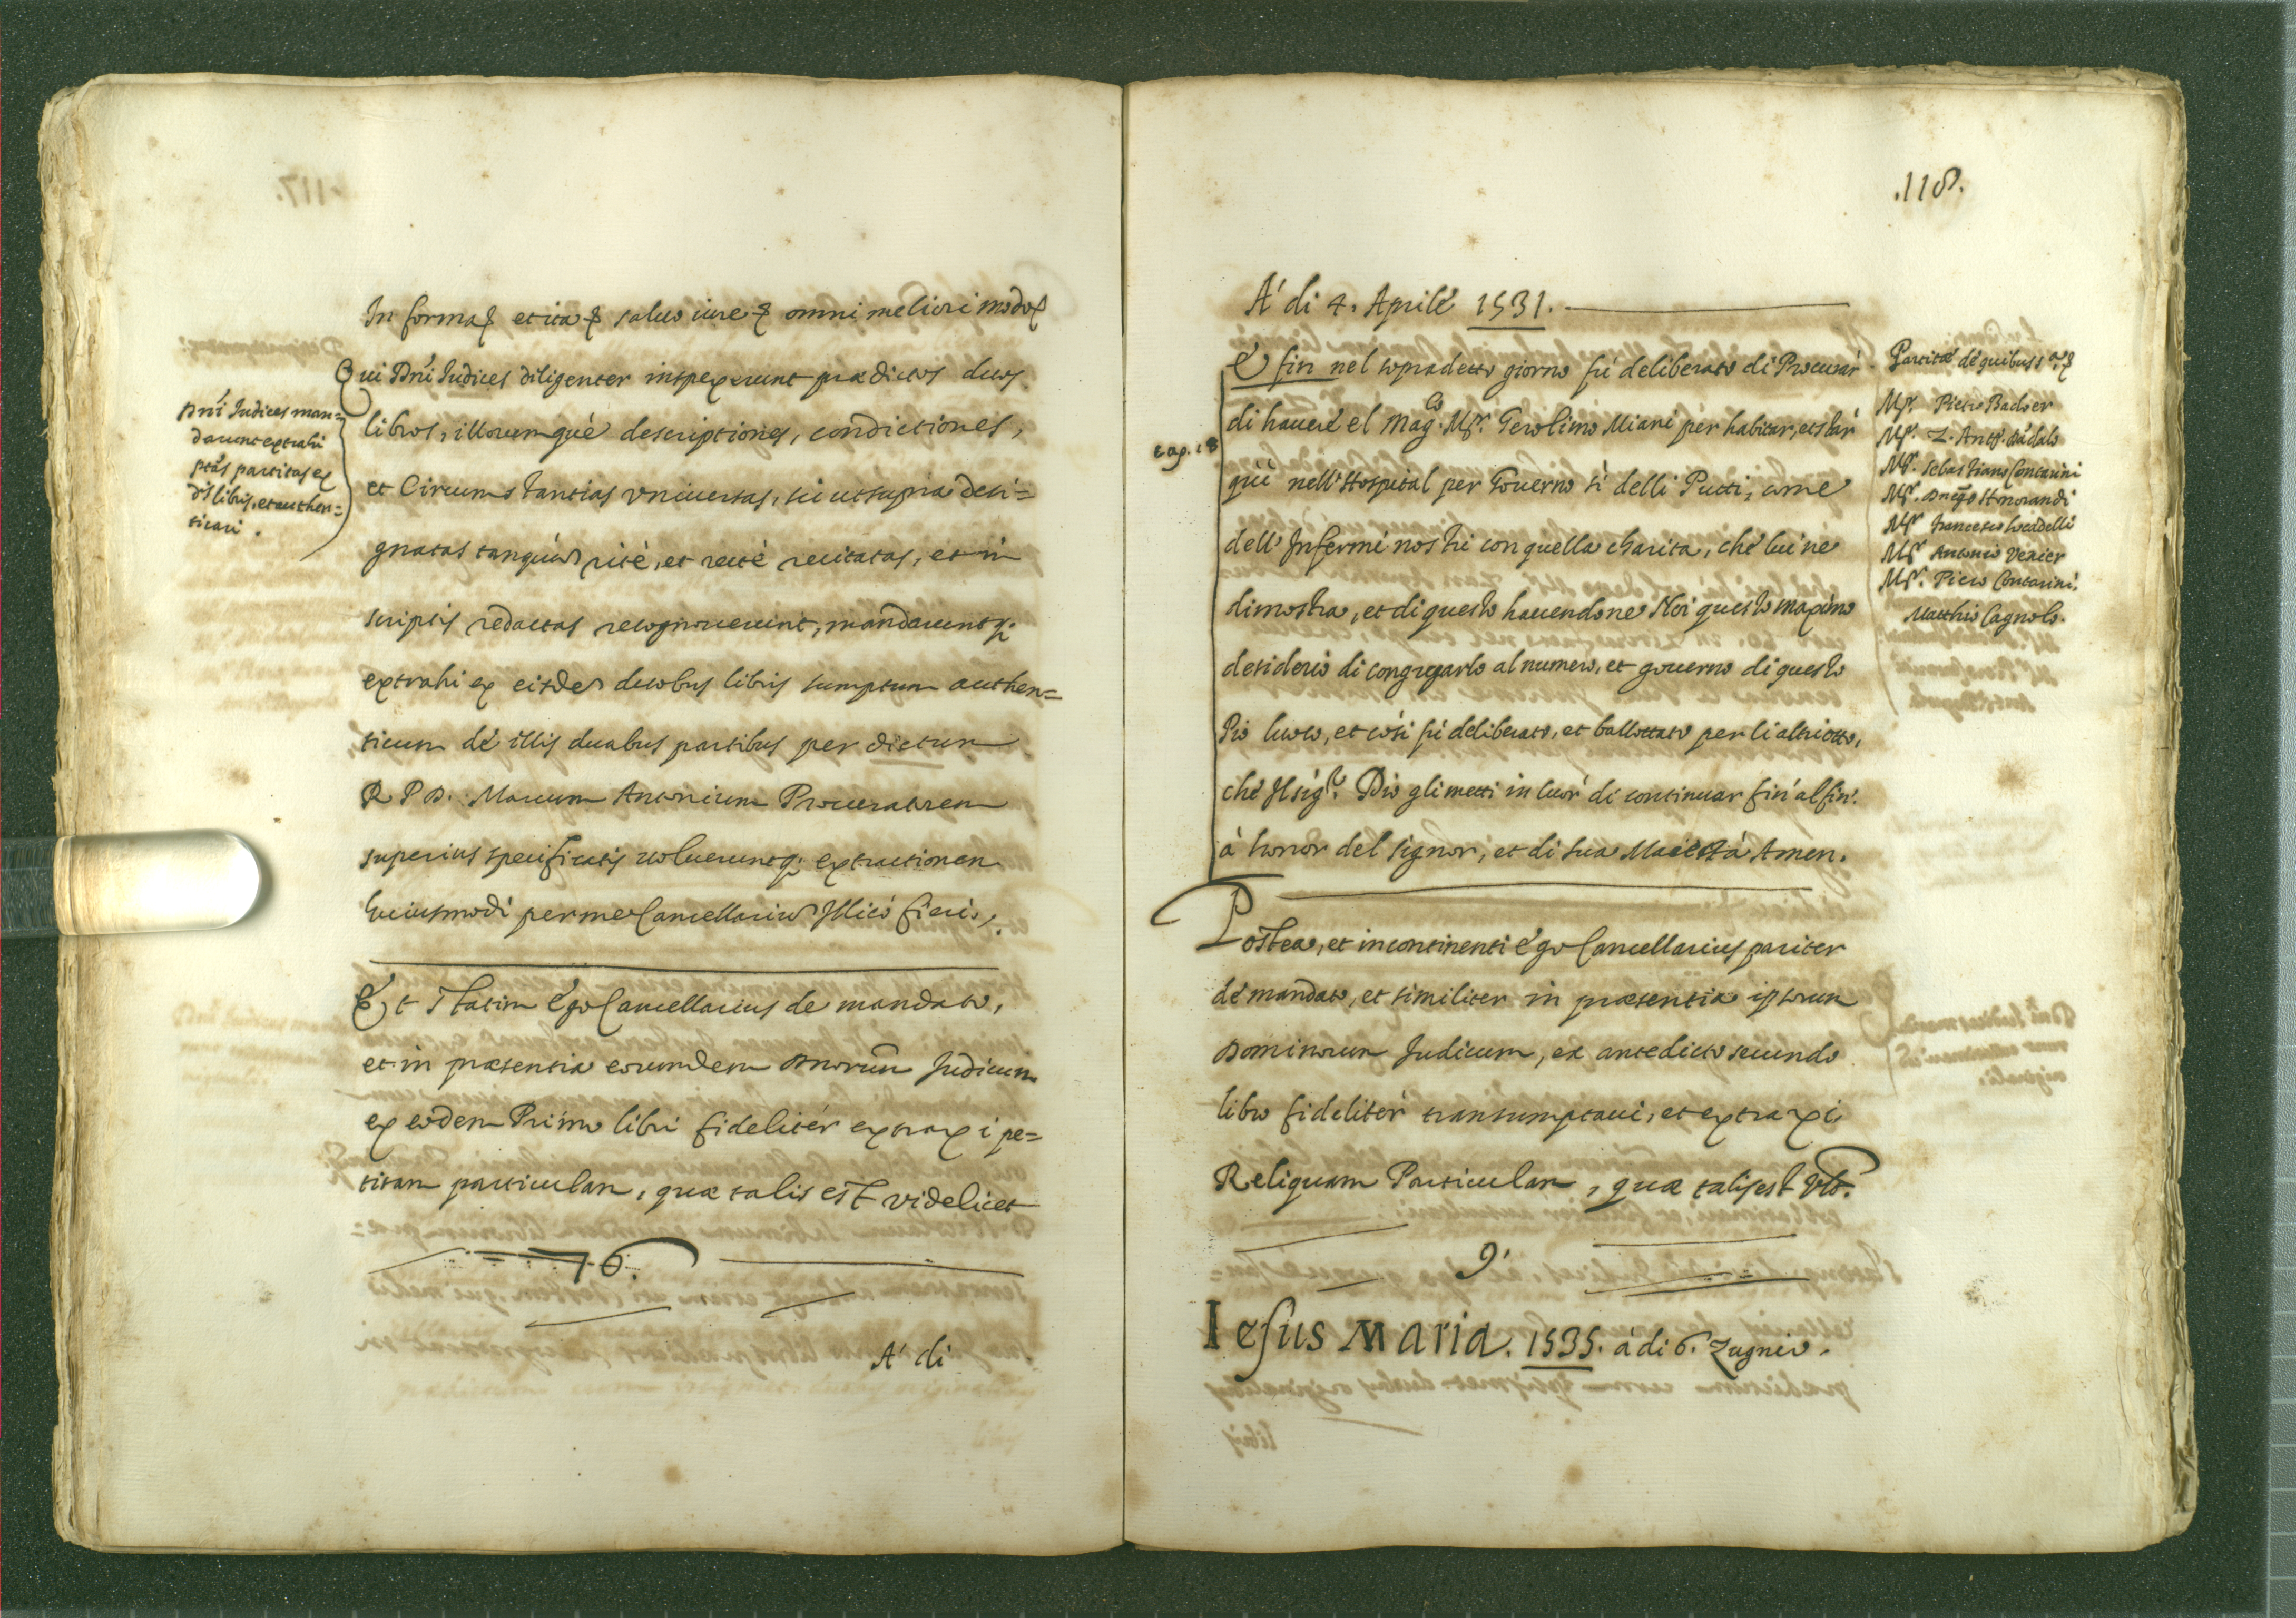 In forma et ita salvo iure omni meliori modo
Qui Dñi Iudices diligenter inspexerunt prædictos duos
Dñi Iudices man=
darunt extrahi
ptas partitas ex
ds libris, et authen=
ticari.
libros, illorumquè descriptiones, condictiones,
et Circumstantias universas, sic ut supra desi=
gnatas tanquàm ritè, et rectè recitatas, et in
scriptis redactas recognoverunt, mandaveruntq;
extrahi ex eisdem duobus libris sumptum authen=
ticum dè illis duabus partibus per dictum
R P D. Marcum Antonium Procuratorem
superius specificatis volueruntq; extractionem
huiusmodi per me Cancellarium Illicò fieri.
Et statim ego Cancellarius de mandato,
et in præsentia eorumdem Dnorum Iudicum
ex eodem Primo libri fidelitèr extraxi pe=
titam particulam, quæ talis est videlicet
76.
A' di
.118.
A' di 4. Aprile 1531.
E fin nel sopradetto giorno fù deliberato di Procurar
di havere el Mag.co Msr. Gerolimo Miani per habitar, et star
cap. 18
quì nell'Hospital per Governo sì delli Putti, come
dell'Infermi nostri con quella charita, chè lui ne
dimostra, et di questo havendone Noi questo maximo
desiderio di congregarlo al numero, et governo di questo
Pio luoco, et così fù deliberato, et ballottato per li altri otto,
chè Il sigr. Dio gli metti in cuòr di continuar fin' al fin'.
à honòr del signor, et di sua Maiestà Amen.
Partitæ dè quibus sª
Msr. Pietro Badoer
Msr. Z. Antº. Dádalo
Msr. Sebastiano Contarini
Msr. Dnēgo Honorandi
Msr. Francesco Locadelli
Msr. Antonio Venier
Msr. Piero Contarini.
Matthio Cagnolo.
Postea, et incontinenti ego Cancellarius pariter
dè mandato, et similiter in præsentia ipsorum
Dominorum Iudicum, ex antedicto secundo
libro fidelitèr transumptavi, et extraxi
Reliquam Particulam, quæ talis est Vdt.
9'
Iesus Maria. 1535. à di 6. Zugnio.